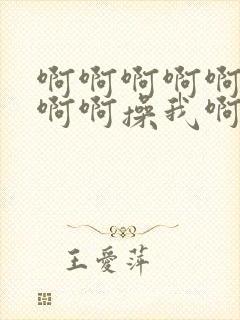 啊啊啊啊啊
啊啊操我啊
王爱萍